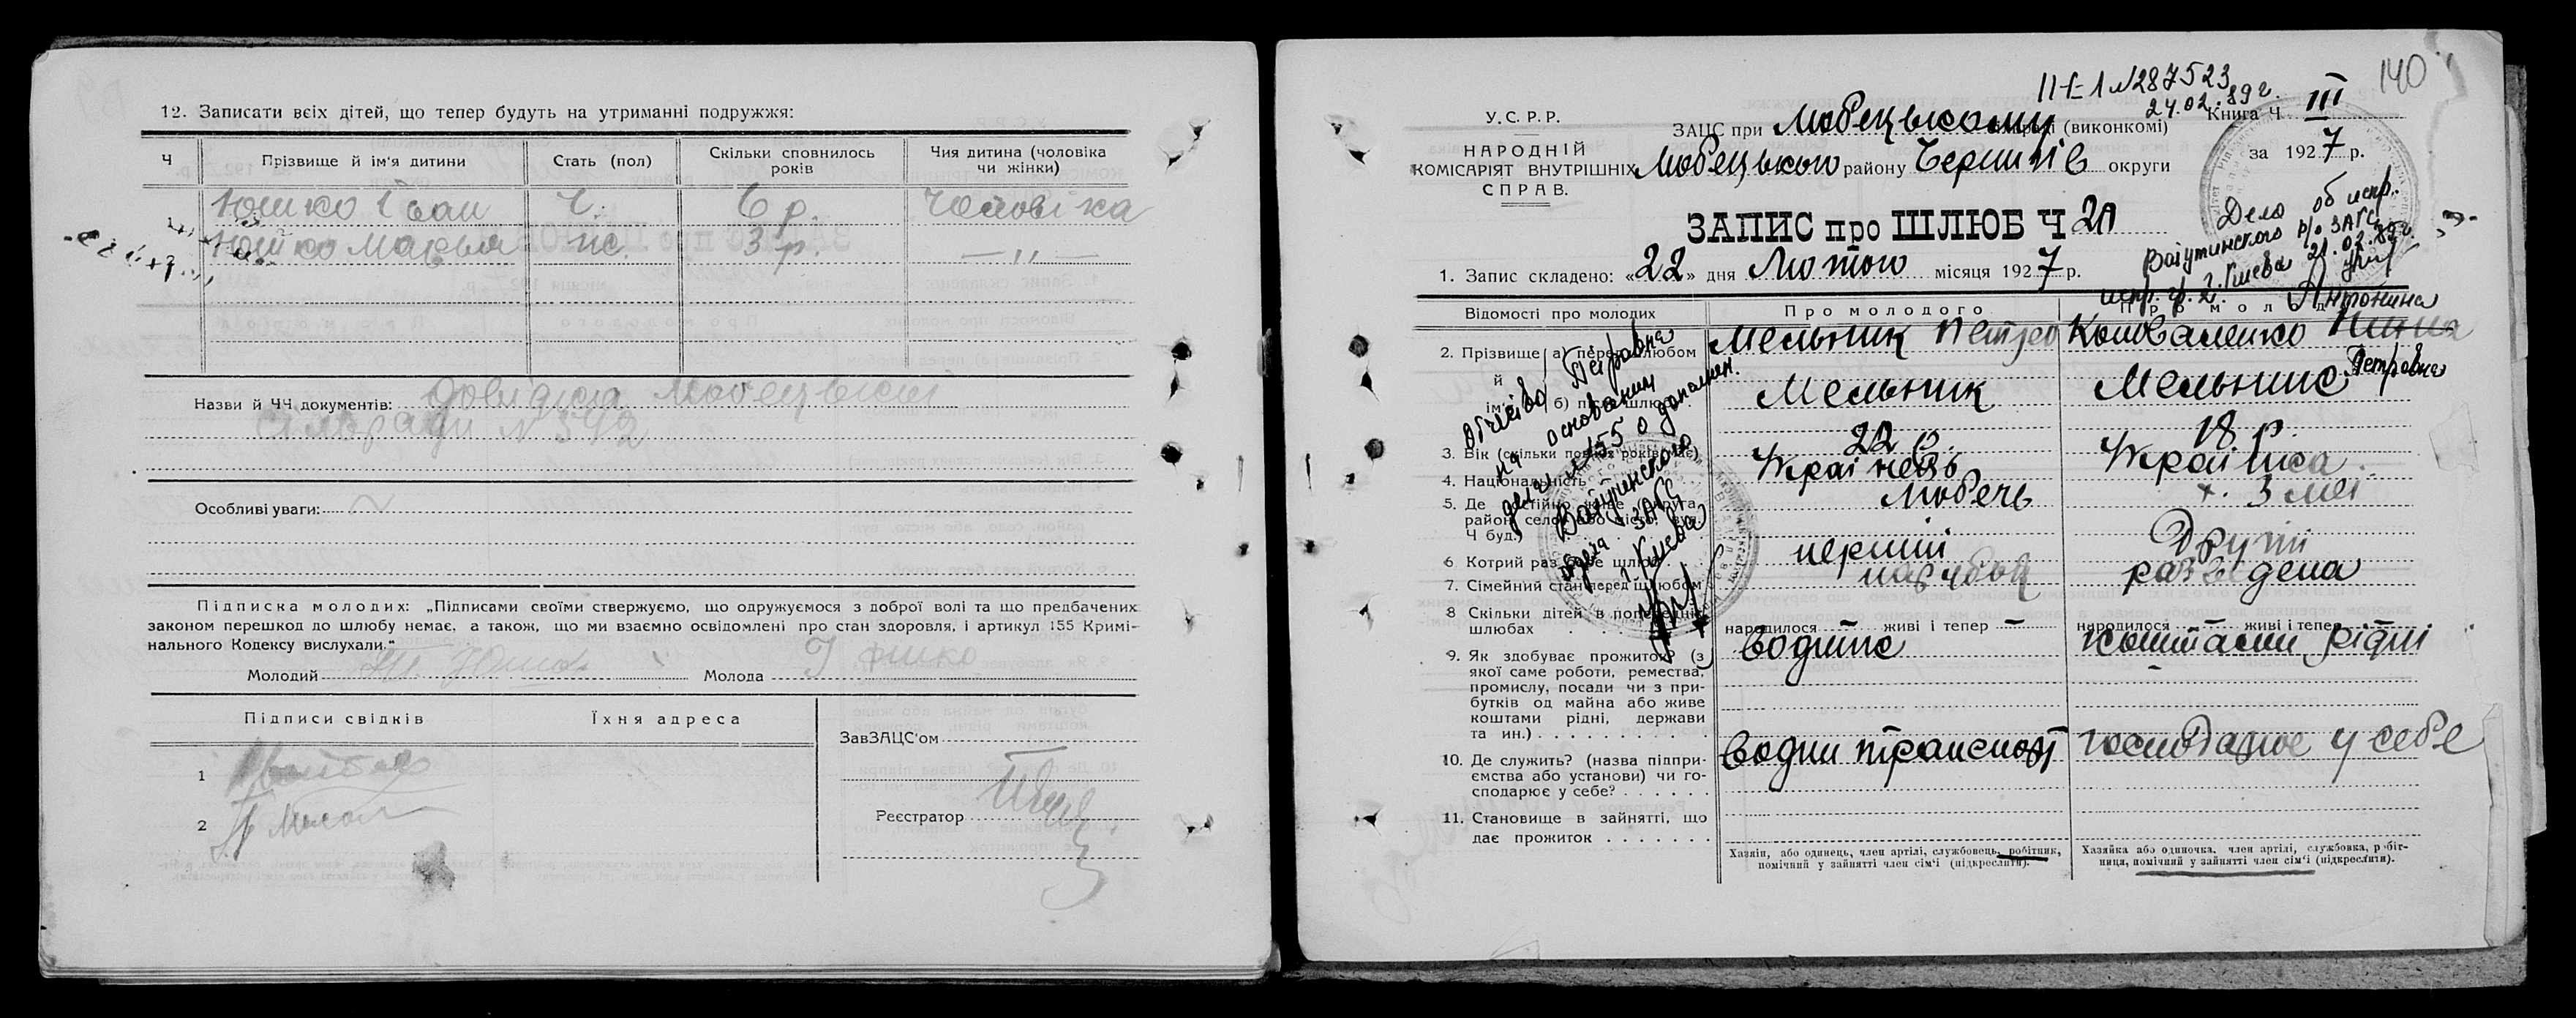 12. Записати всіх дітей, що тепер будуть на утриманні подружжя:
Ч
Прізвище й ім'я дитини
Стать (пол)
Скільки сповнилось років
Чия дитина (чоловіка чи жінки)
Юшко Іван Ч. 6 р. Чоловіка
Юшко Марья ж. 3 р. — „ —
Назви й ЧЧ документів: довідка Любецької
сільради N 592
Особливі уваги:
Підписка молодих: „Підписами своїми стверджуємо, що одружуємося з доброї волі та що предбачених
законом перешкод до шлюбу немає, а також, що ми взаємно освідомлені про стан здоровля, і артикул 155 Кримі-
нального Кодексу вислухали."
Молодий
Молода
Підписи свідків
Їхня адреса
1
2
ЗавЗАЦС'ом
Реєстратор
140
II-БЛ N287523
24.02.89г.
У.С.Р.Р.
НАРОДНІЙ
КОМІСАРІЯТ ВНУТРІШНІХ
СПРАВ.
ЗАЦС при Любецькому (виконкомі)
Любецького району Чернигів округи
Книга Ч III
за 1927 р.
ЗАПИС про ШЛЮБ Ч 20
Дело об испр.
Ватутинского р/о ЗАГС
г. Киева 21.02.89г.
1. Запис складено: «22» дня Лютого місяця 1927 р.
Відомості про молодих
Про молодого
Антонина
2. Прізвище й ім'я
а) перед шлюбом
Мельник Петро
Коноваленко
Петровна
б) після шлюбу
Мельник
Мельник
Отчество Петровна
на основании
о дополнен.
Ватутинского
ЗАГС
г. Киева
3. Вік (скільки повних років має)
22 р.
18 р.
4. Національність
Українець
Українка
5. Де постійно живе (округа,
район, село або місто, вул.
Ч буд.)
Любечь
6. Котрий раз бере шлюб
перший
Другий
7. Сімейний стан перед шлюбом
парубок
разведена
8 Скільки дітей в попередніх
шлюбах
народилося — живі і тепер —
народилося живі і тепер
9. Як здобуває прожиток? (з
якої саме роботи, ремества,
промислу, посади чи з при-
бутків од майна або живе
коштами рідні, держави
та ин.)
водник
коштами рідні
10. Де служить? (назва підпри-
ємства або установи) чи го-
сподарює у себе?
водни транспорт
господарює у себе
11. Становище в зайнятті, що
дає прожиток
Хазяїн, або одинець, член артілі, службовець, робітник,
помічний у зайнятті член сім'ї (підкреслити).
Хазяйка або одиночка, член артілі, службовка, робіт-
ниця, помічний у зайнятті член сім'ї (підкреслити).